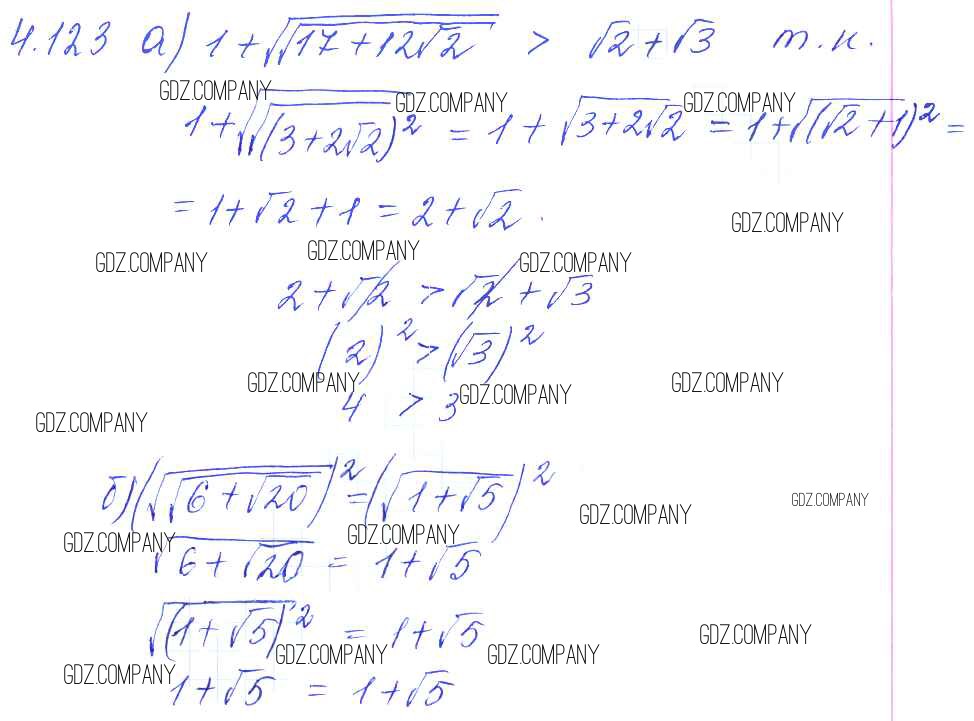 4.123 а) 1 + √√17 + 12√2 > √2 + √3 т.к.
GDZ.COMPANY GDZ.COMPANY GDZ.COMPANY
1 + √√(3 + 2√2)² = 1 + √3 + 2√2 = 1 + √(√2 + 1)² =
= 1 + √2 + 1 = 2 + √2.
GDZ.COMPANY
GDZ.COMPANY GDZ.COMPANY GDZ.COMPANY
2 + √2 > √2 + √3
(2)² > (√3)²
GDZ.COMPANY GDZ.COMPANY GDZ.COMPANY
4 > 3
GDZ.COMPANY
б) (√√6 + √20)² = (√1 + √5)²
GDZ.COMPANY GDZ.COMPANY
GDZ.COMPANY GDZ.COMPANY
√6 + √20 = 1 + √5
√(1 + √5)² = 1 + √5
GDZ.COMPANY
GDZ.COMPANY GDZ.COMPANY GDZ.COMPANY
1 + √5 = 1 + √5